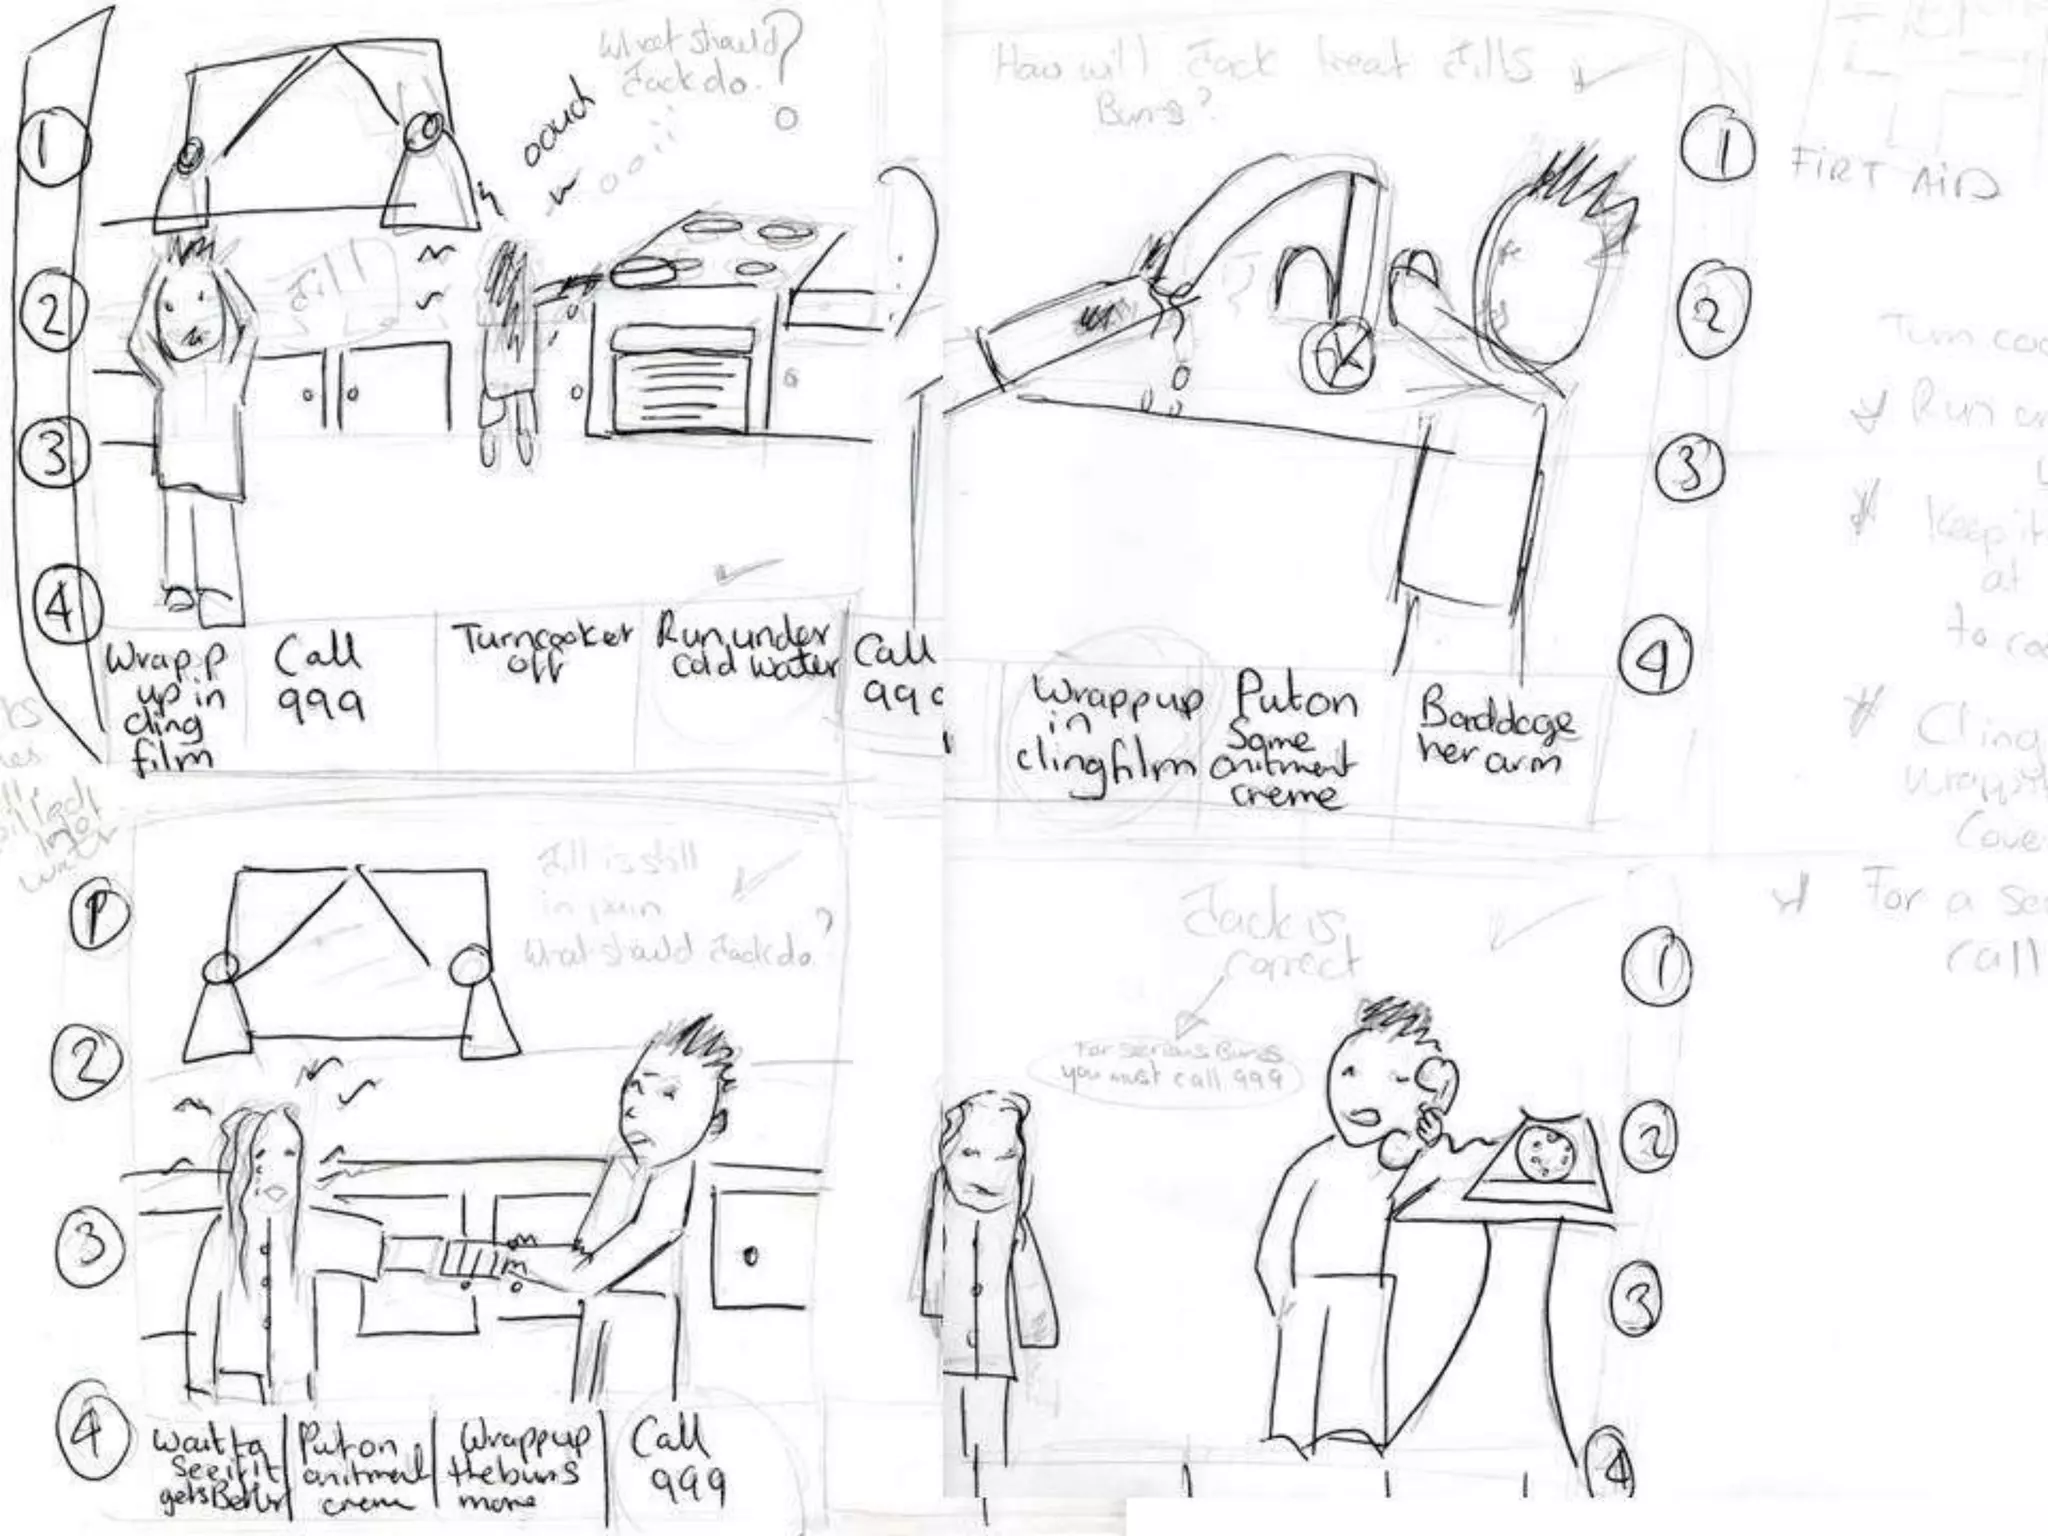 What should
Jack do.?
oouch
Jill
1
2
3
4
Wrapp
up in
cling
film
Call
999
Turn cooker
off
Run under
cold water
Call
99
How will Jack treat Jills
Burns?
1
2
3
4
FiRT AiD
Turn coo
Run
Keep it
at
to co
Cling
wrapp
Cove
For a se
call
Wrapp up
in
cling film
Put on
Some
onitment
creme
Banddage
her arm
water
Jill is still
in pain
What should Jack do?
1
2
3
4
Wait to
see if it
gets Better
Put on
onitment
creme
Wrapp up
the burns
more
Call
999
Jack is
correct
For serious Burns
you must call 999
1
2
3
4